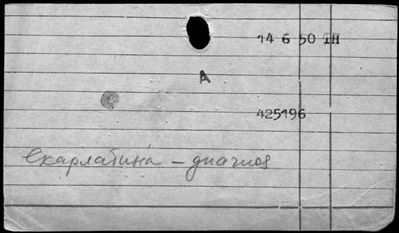 14 6 50 IH
A
425196
Скарлатина - диагноз